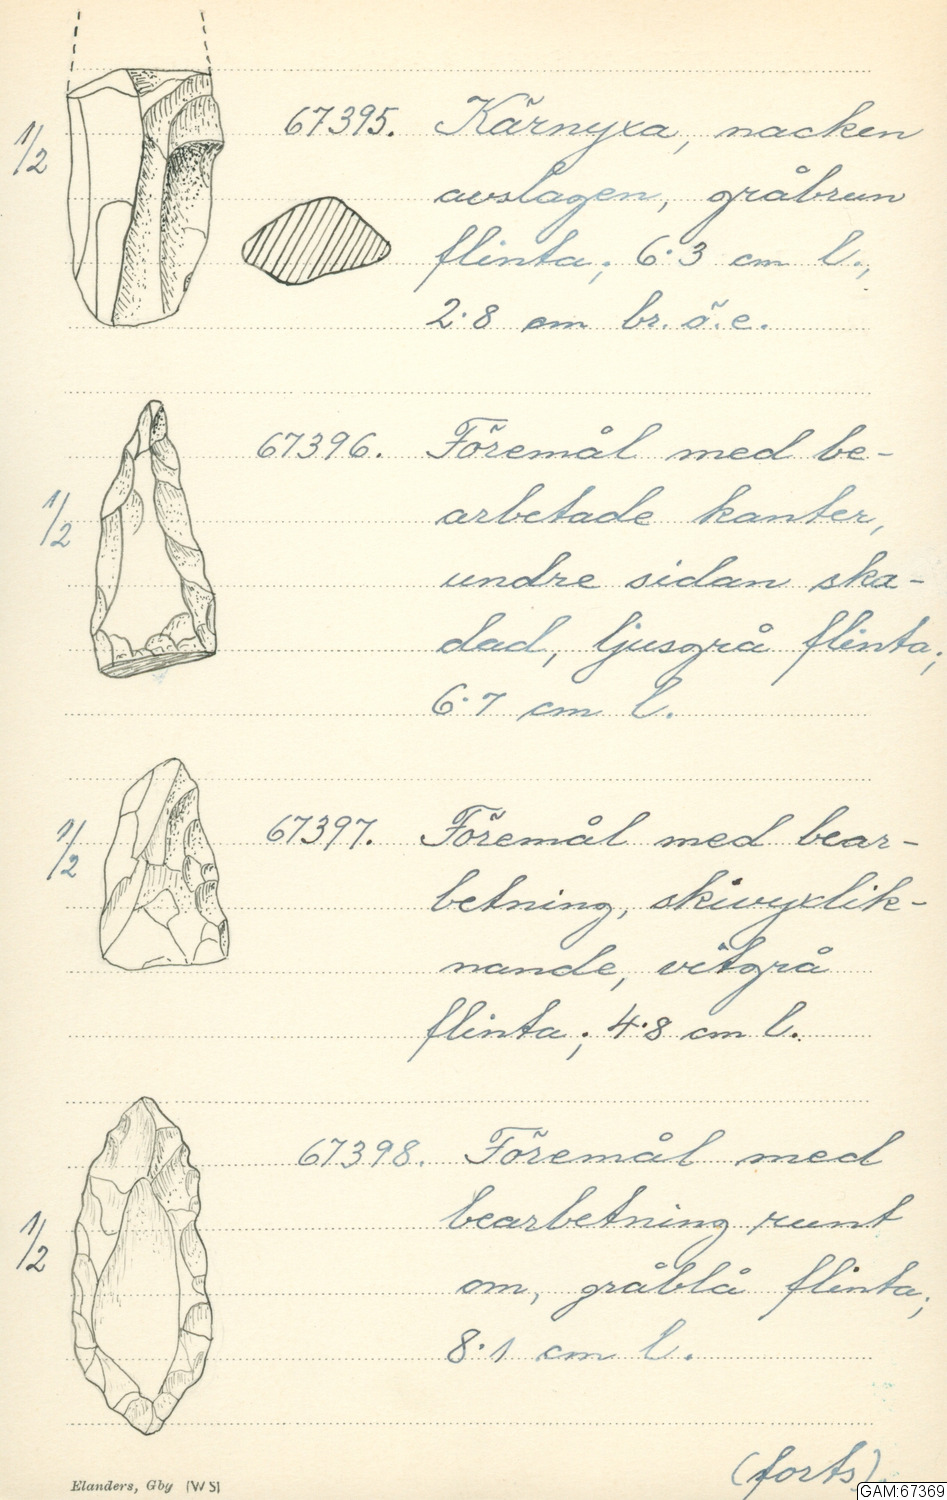 1/2 67395. Kärnyxa, nacken
avslagen, gråbrun
flinta; 6·3 cm l.,
2·8 cm br. ö. e.
1/2 67396. Föremål med be-
arbetade kanter,
undre sidan ska-
dad, ljusgrå flinta;
6·7 cm l.
1/2 67397. Föremål med bear-
betning, skivyxlik-
nande, vitgrå
flinta; 4·8 cm l.
1/2 67398. Föremål med
bearbetning runt
om, gråblå flinta;
8·1 cm l.
(forts).
Elanders, Gby (WS)
GAM:67369